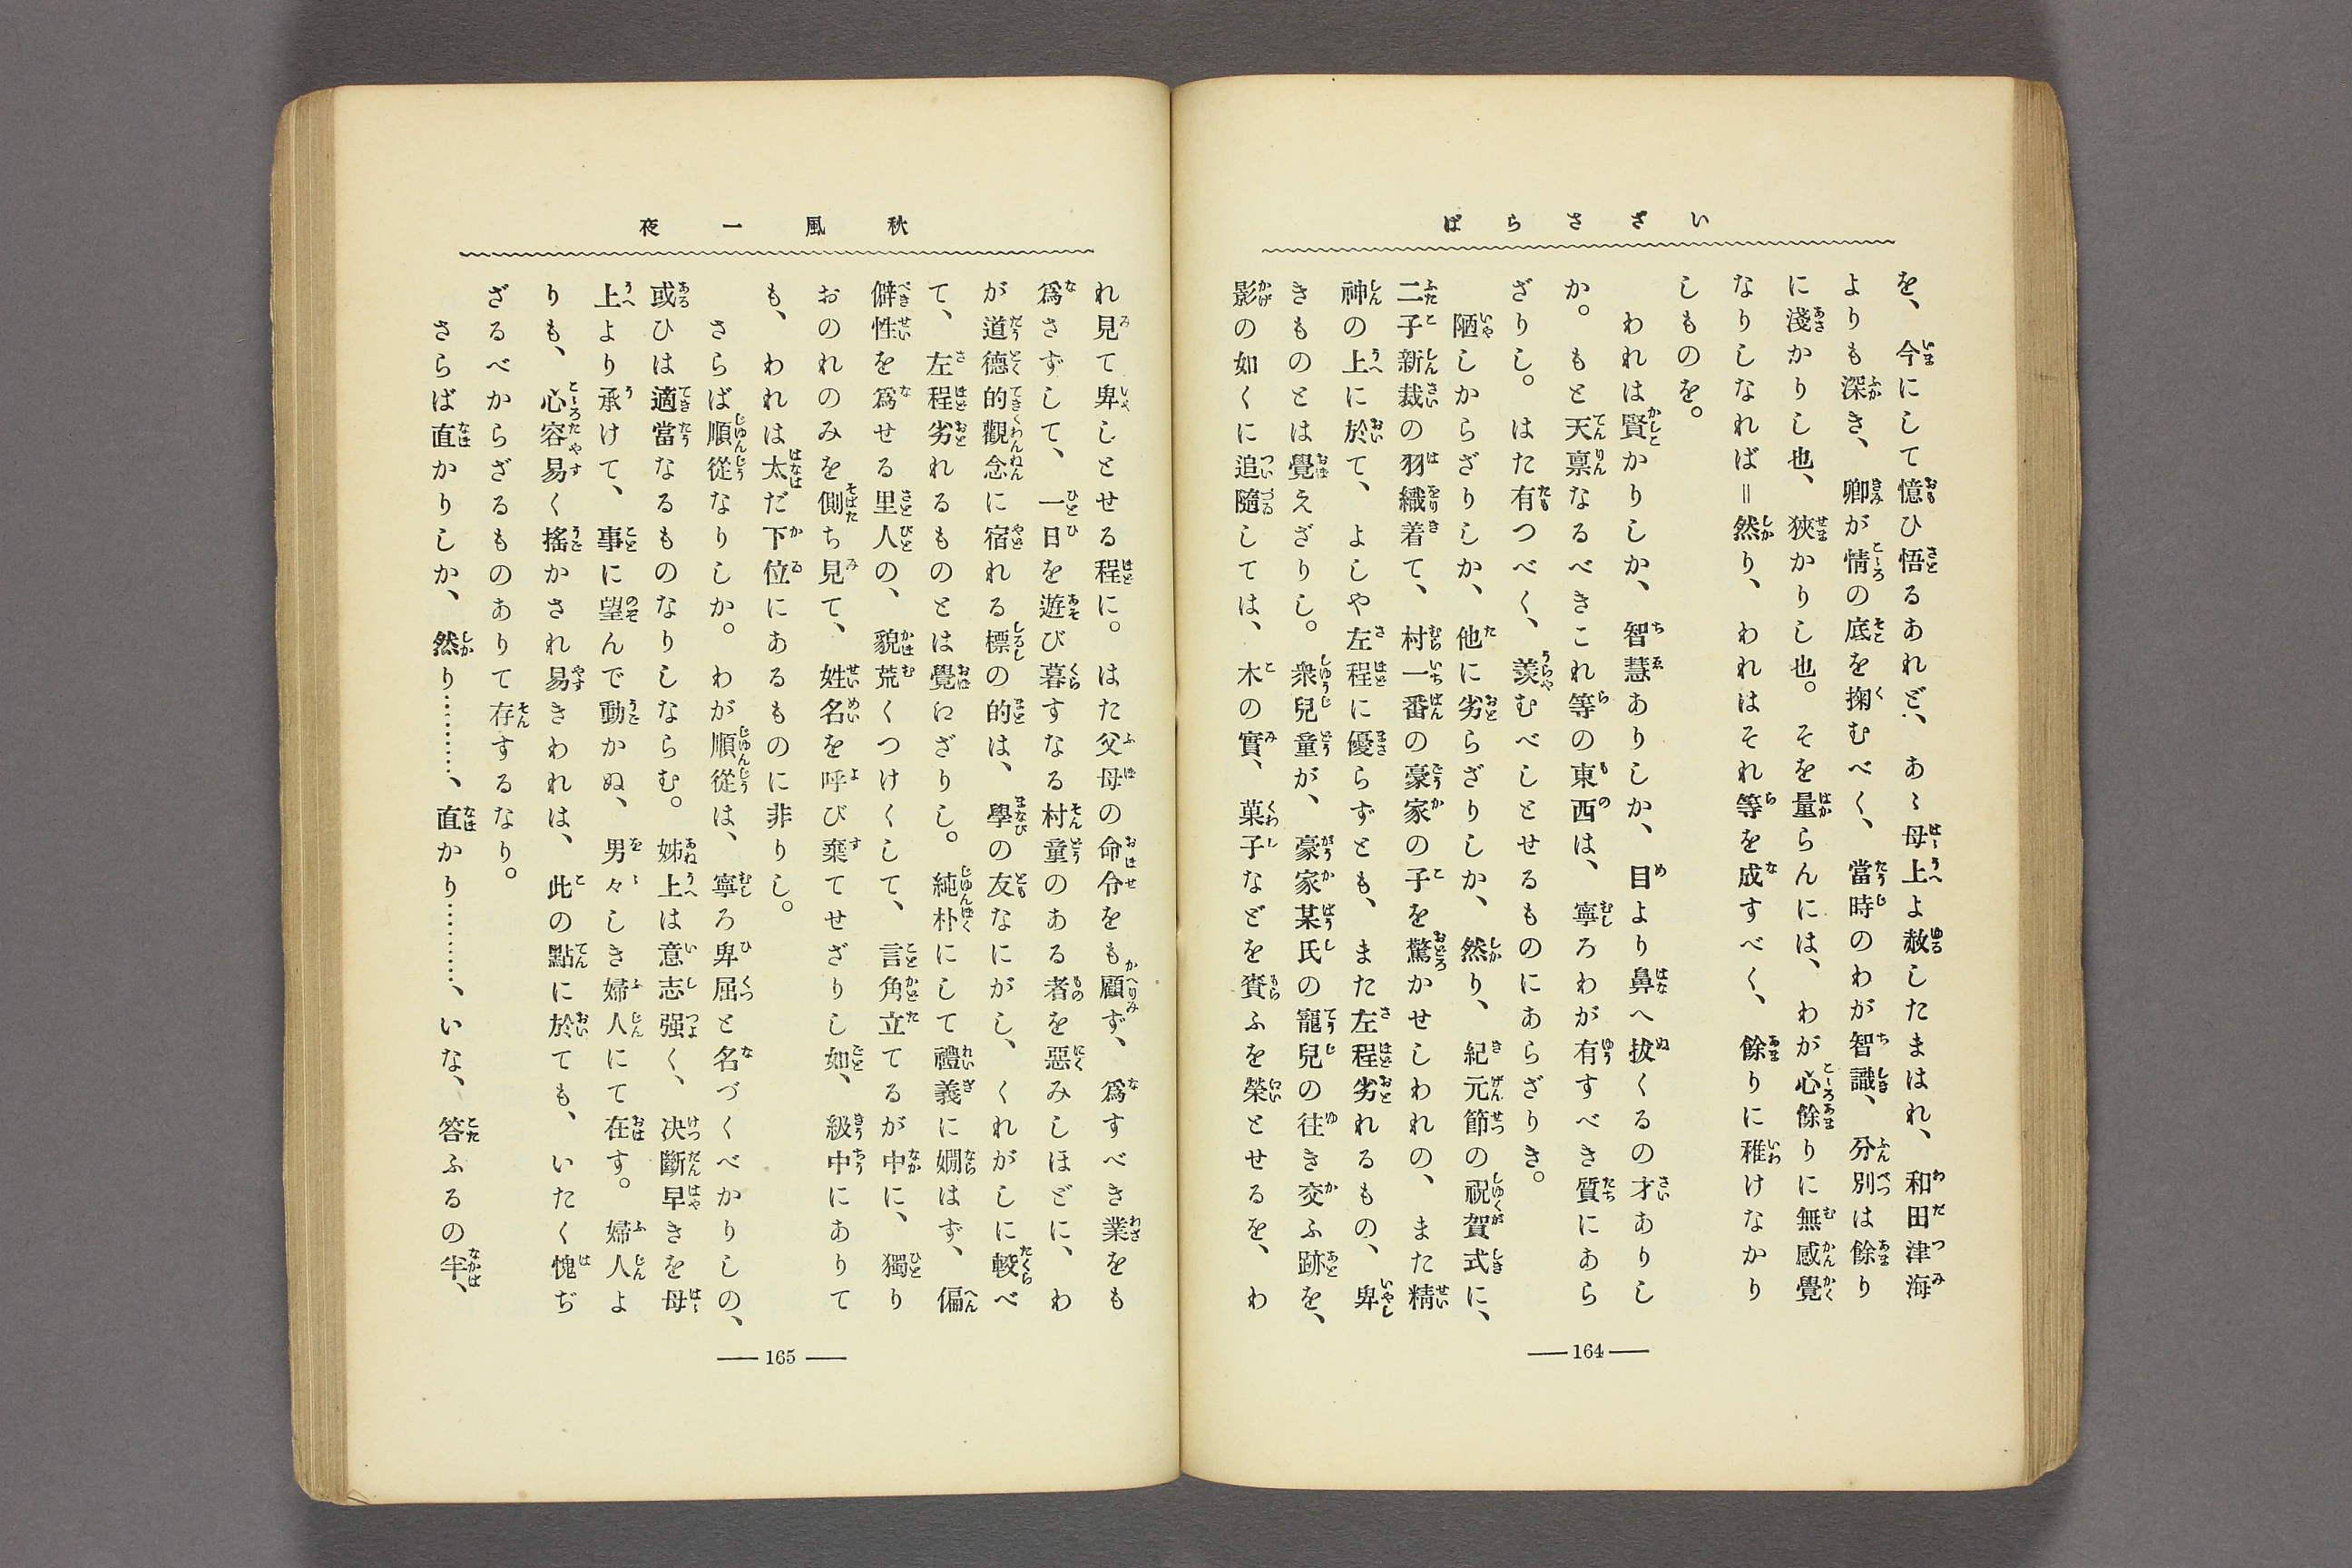 いざさらば
を、今にして憶ひ悟るあれど、あゝ母上よ赦したまはれ、和田津海
よりも深き、卿が情の底を掬むべく、當時のわが智識、分別は餘り
に淺かりし也、狹かりし也。そを量らんには、わが心餘りに無感覺
なりしなれば＝然り、われはそれ等を成すべく、餘りに稚けなかり
しものを。
われは賢かりしか、智慧ありしか、目より鼻へ拔くるの才ありし
か。もと天禀なるべきこれ等の東西は、寧ろわが有すべき質にあら
ざりし。はた有つべく、羨むべしとせるものにあらざりき。
陋しからざりしか、他に劣らざりしか、然り、紀元節の祝賀式に、
二子新裁の羽織着て、村一番の豪家の子を驚かせしわれの、また精
神の上に於て、よしや左程に優らずとも、また左程劣れるもの、卑
きものとは覺えざりし。衆兒童が、豪家某氏の寵兒の往き交ふ跡を、
影の如くに追隨しては、木の實、菓子などを賚ふを榮とせるを、わ
164
秋風一夜
れ見て卑しとせる程に。はた父母の命令をも顧ず、爲すべき業をも
爲さずして、一日を遊び暮すなる村童のある者を惡みしほどに、わ
が道德的觀念に宿れる標の的は、學の友なにがし、くれがしに較べ
て、左程劣れるものとは覺にざりし。純朴にして禮義に嫺はず、偏
僻性を爲せる里人の、貌荒くつけくして、言角立てるが中に、獨り
おのれのみを側ち見て、姓名を呼び棄てせざりし如、級中にありて
も、われは太だ下位にあるものに非りし。
さらば順從なりしか。わが順從は、寧ろ卑屈と名づくべかりしの、
或ひは適當なるものなりしならむ。姊上は意志强く、決斷早きを母
上より承けて、事に望んで動かぬ、男々しき婦人にて在す。婦人よ
りも、心容易く搖かされ易きわれは、此の點に於ても、いたく愧ぢ
ざるべからざるものありて存するなり。
さらば直かりしか、然り…………、直かり…………、いな、答ふるの半、
165